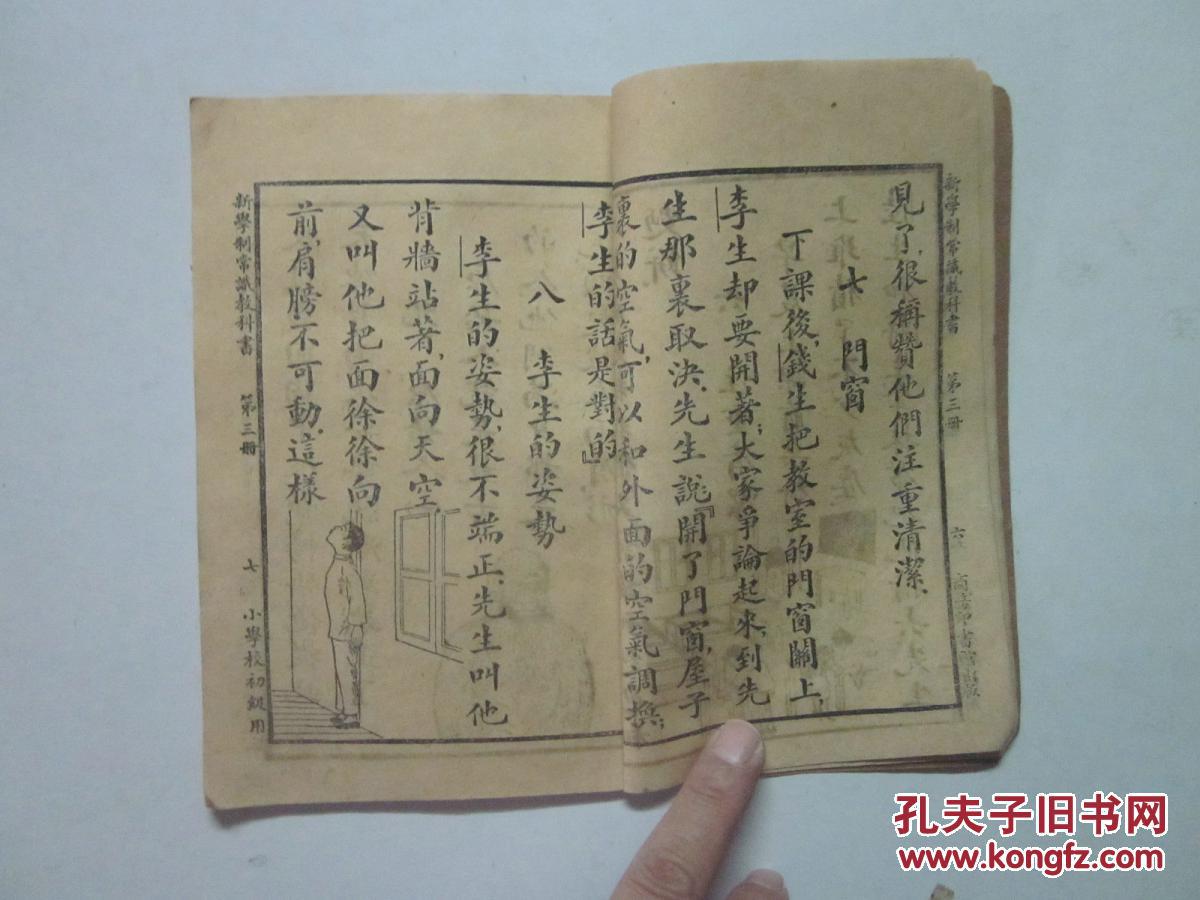 新學制常識教科書 第三冊 六 商務印書館出版
見了,很稱贊他們注重清潔、
七 門窗
下課後,錢生把教室的門窗關上,
李生却要開著;大家爭論起來,到先
生那裏取決、先生說『開了門窗,屋子
裏的空氣,可以和外面的空氣調換;
李生的話是對的』
八 李生的姿勢
李生的姿勢,很不端正、先生叫他
背牆站著,面向天空
又叫他把面徐徐向
前,肩膀不可動、這樣
新學制常識教科書 第三冊 七 小學校初級用
孔夫子旧书网
www.kongfz.com